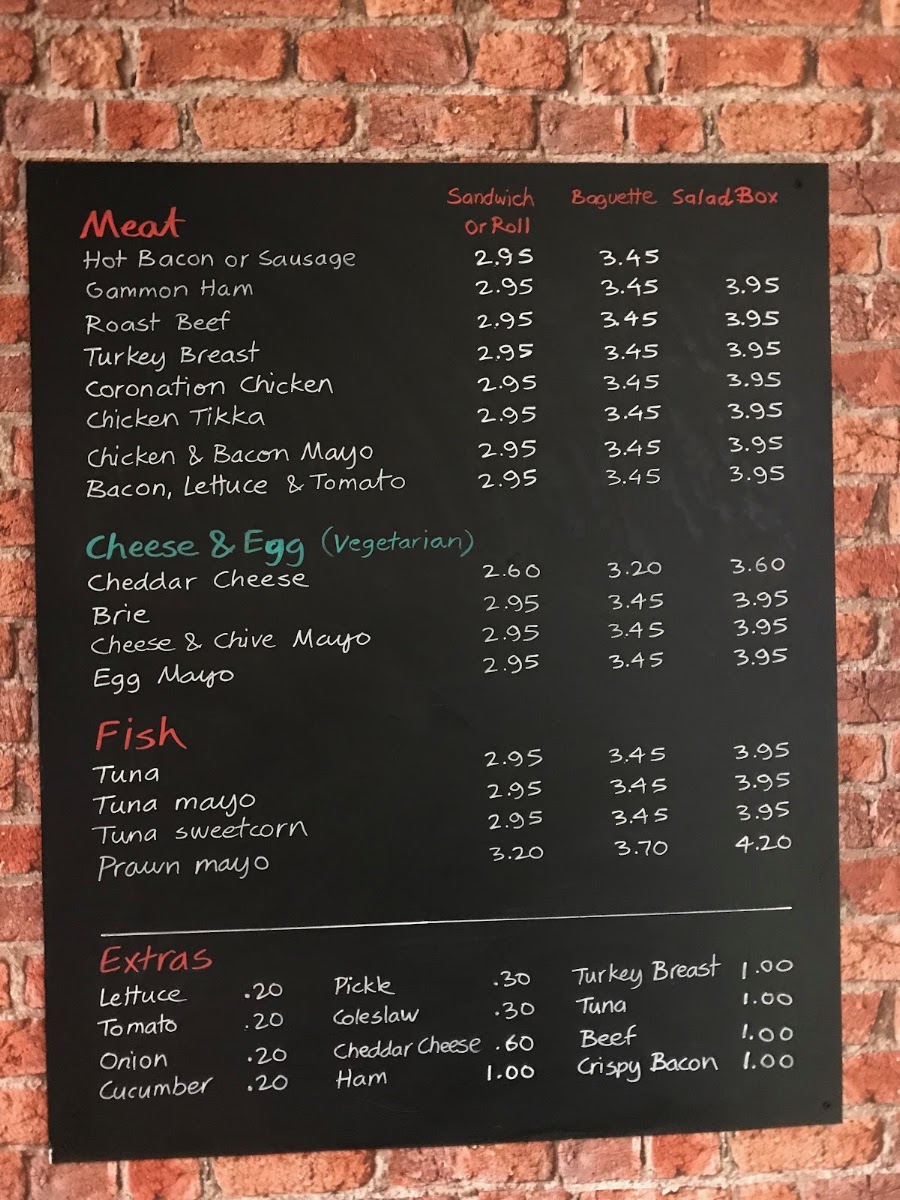 Sandwich or Roll Baguette Salad Box
Meat
Hot Bacon or Sausage 2.95 3.45
Gammon Ham 2.95 3.45 3.95
Roast Beef 2.95 3.45 3.95
Turkey Breast 2.95 3.45 3.95
Coronation Chicken 2.95 3.45 3.95
Chicken Tikka 2.95 3.45 3.95
Chicken & Bacon Mayo 2.95 3.45 3.95
Bacon, Lettuce & Tomato 2.95 3.45 3.95
Cheese & Egg (Vegetarian)
Cheddar Cheese 2.60 3.20 3.60
Brie 2.95 3.45 3.95
Cheese & Chive Mayo 2.95 3.45 3.95
Egg Mayo 2.95 3.45 3.95
Fish
Tuna 2.95 3.45 3.95
Tuna mayo 2.95 3.45 3.95
Tuna sweetcorn 2.95 3.45 3.95
Prawn mayo 3.20 3.70 4.20
Extras
Lettuce .20 Pickle .30 Turkey Breast 1.00
Tomato .20 Coleslaw .30 Tuna 1.00
Onion .20 Cheddar Cheese .60 Beef 1.00
Cucumber .20 Ham 1.00 Crispy Bacon 1.00